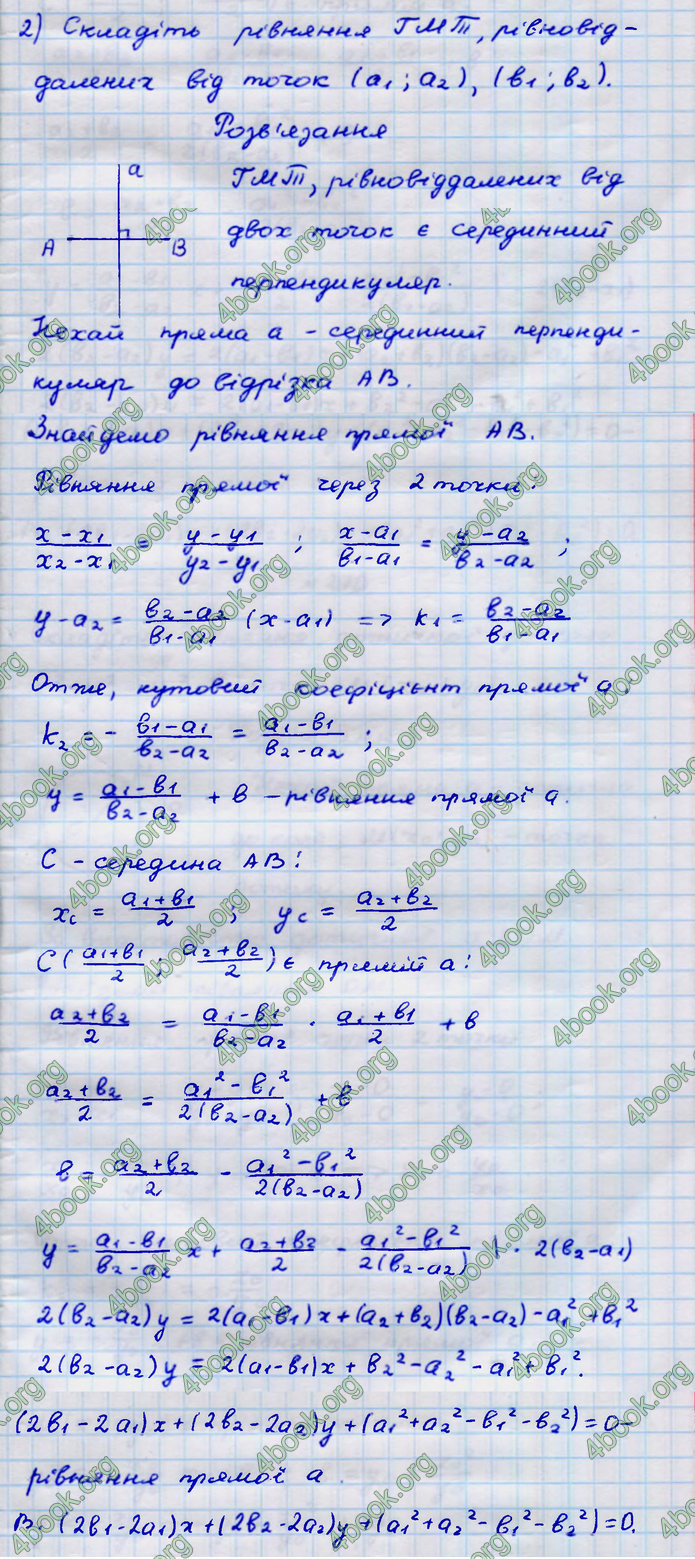 2) Складіть рівняння ГМТ, рівновід-
далених від точок (a₁; a₂), (в₁; в₂).
Розв'язання
a
ГМТ, рівновіддалених від
A B
двох точок є серединний
перпендикуляр.
Нехай пряма a – серединний перпенди-
куляр до відрізка AB.
Знайдемо рівняння прямої AB.
Рівняння прямої через 2 точки:
(x - x₁)/(x₂ - x₁) = (y - y₁)/(y₂ - y₁) ; (x - a₁)/(в₁ - a₁) = (y - a₂)/(в₂ - a₂) ;
y - a₂ = (в₂ - a₂)/(в₁ - a₁) (x - a₁) => k₁ = (в₂ - a₂)/(в₁ - a₁)
Отже, кутовий коефіцієнт прямої a:
k₂ = - (в₁ - a₁)/(в₂ - a₂) = (a₁ - в₁)/(в₂ - a₂) ;
y = (a₁ - в₁)/(в₂ - a₂) + в – рівняння прямої a.
C – середина AB:
x_c = (a₁ + в₁)/2 ; y_c = (a₂ + в₂)/2
C ((a₁ + в₁)/2 ; (a₂ + в₂)/2) є прямій a:
(a₂ + в₂)/2 = (a₁ - в₁)/(в₂ - a₂) · (a₁ + в₁)/2 + в
(a₂ + в₂)/2 = (a₁² - в₁²)/(2(в₂ - a₂)) + в
в = (a₂ + в₂)/2 - (a₁² - в₁²)/(2(в₂ - a₂))
y = (a₁ - в₁)/(в₂ - a₂) x + (a₂ + в₂)/2 - (a₁² - в₁²)/(2(в₂ - a₂)) | · 2(в₂ - a₁)
2(в₂ - a₂)y = 2(a₁ - в₁)x + (a₂ + в₂)(в₂ - a₂) - a₁² + в₁²
2(в₂ - a₂)y = 2(a₁ - в₁)x + в₂² - a₂² - a₁² + в₁².
(2в₁ - 2a₁)x + (2в₂ - 2a₂)y + (a₁² + a₂² - в₁² - в₂²) = 0 –
рівняння прямої a.
В. (2в₁ - 2a₁)x + (2в₂ - 2a₂)y + (a₁² + a₂² - в₁² - в₂²) = 0.